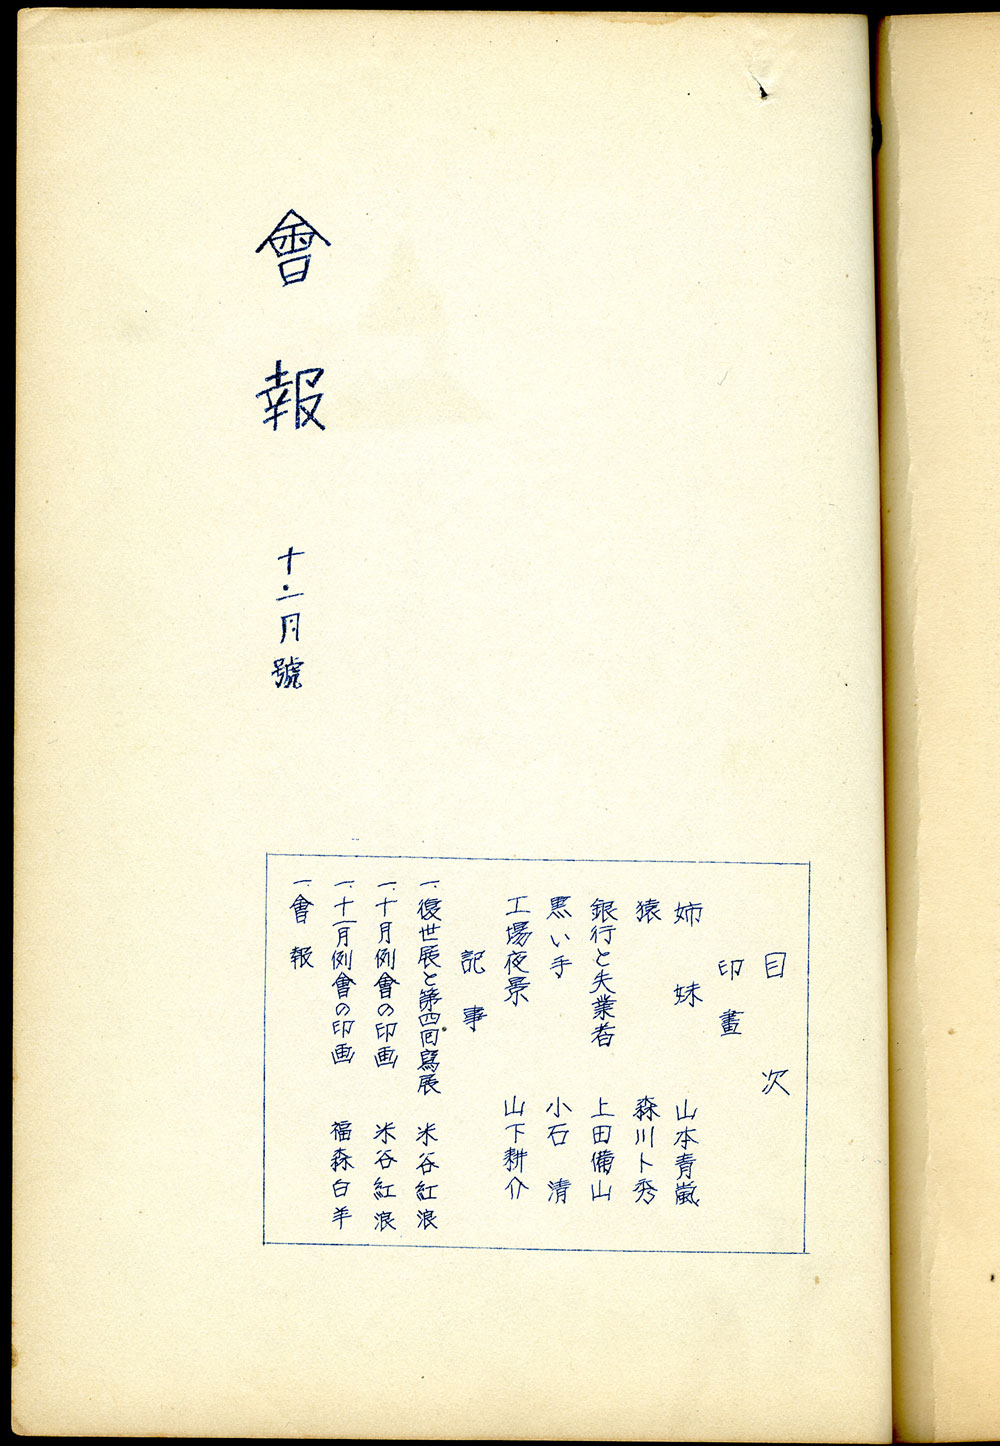 會報 十・一月號
目次
印畫
姉妹 山本青嵐
猿 森川卜秀
銀行と失業者 上田備山
黒い手 小石清
工場夜景 山下耕介
記事
一、復世展と第四回寫展 米谷紅浪
一、十月例會の印画 米谷紅浪
一、十一月例會の印画 福森白羊
一、會報